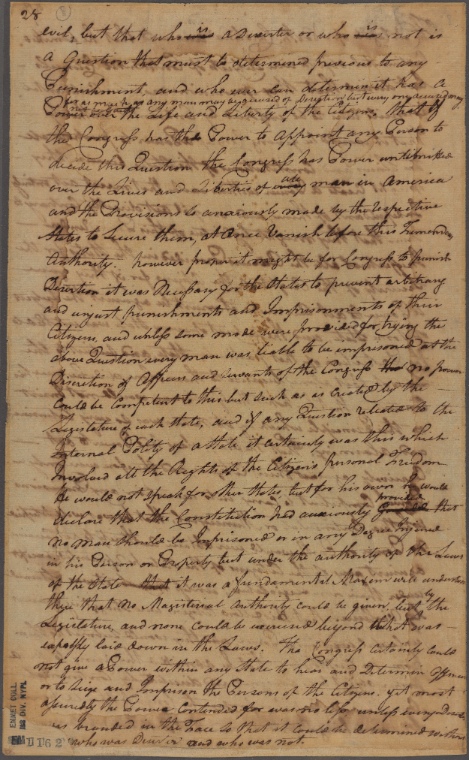 28
evil, but that who is a Deserter or who is not is
a Question that must be determined previous to any
Punishment, and who ever can determine it has a
for as much as any man may be accused of Desertion but every one accused
Power over the Life and Liberty of the Citizens. That if
the Congress had the Power to Appoint any Person to
decide this Question the Congress has Power unlimited
over the Lives and Liberties of every man in America
and the Provisions so anxiously made by the respective
States to secure them, at once Vanish before this
Authority. however proper it might be for Congress to punish
Desertion it was Necessary for the States to prevent arbitrary
and unjust punishments and Imprisonments of their
Citizens, and unless some mode were provided for trying the
above Question every man was liable to be imprisoned at the
Discretion of Officers and Servants of the Congress no person
could be Competent to this but such as is Created by the
Legislature of each State, and if any Question related to the
internal Polity of a State it certainly was this which
Involved all the Rights of the Citizens personal Freedom
he would not speak for other States but for his own he would
provided
declare that the Constitution had anxiously that
no man should be Imprisoned or in any Degree Injured
in his Person or Property but under the authority of the Laws
of the State that it was a fundamental Maxim well understood
there that no Magisterial Authority could be given but by the
Legislature, and none could be exercised beyond what was
expressly laid down in the Laws. The Congress certainly could
not give a Power within any State to hear and Determine Offences
or to Seize and Imprison the Persons of the Citizens. yet most
assuredly the Power contended for was so for unless every
was branded in the Face so that it could be determined
who was Deserter and who was not.
EMMET COLL.
MS DIV. NYPL